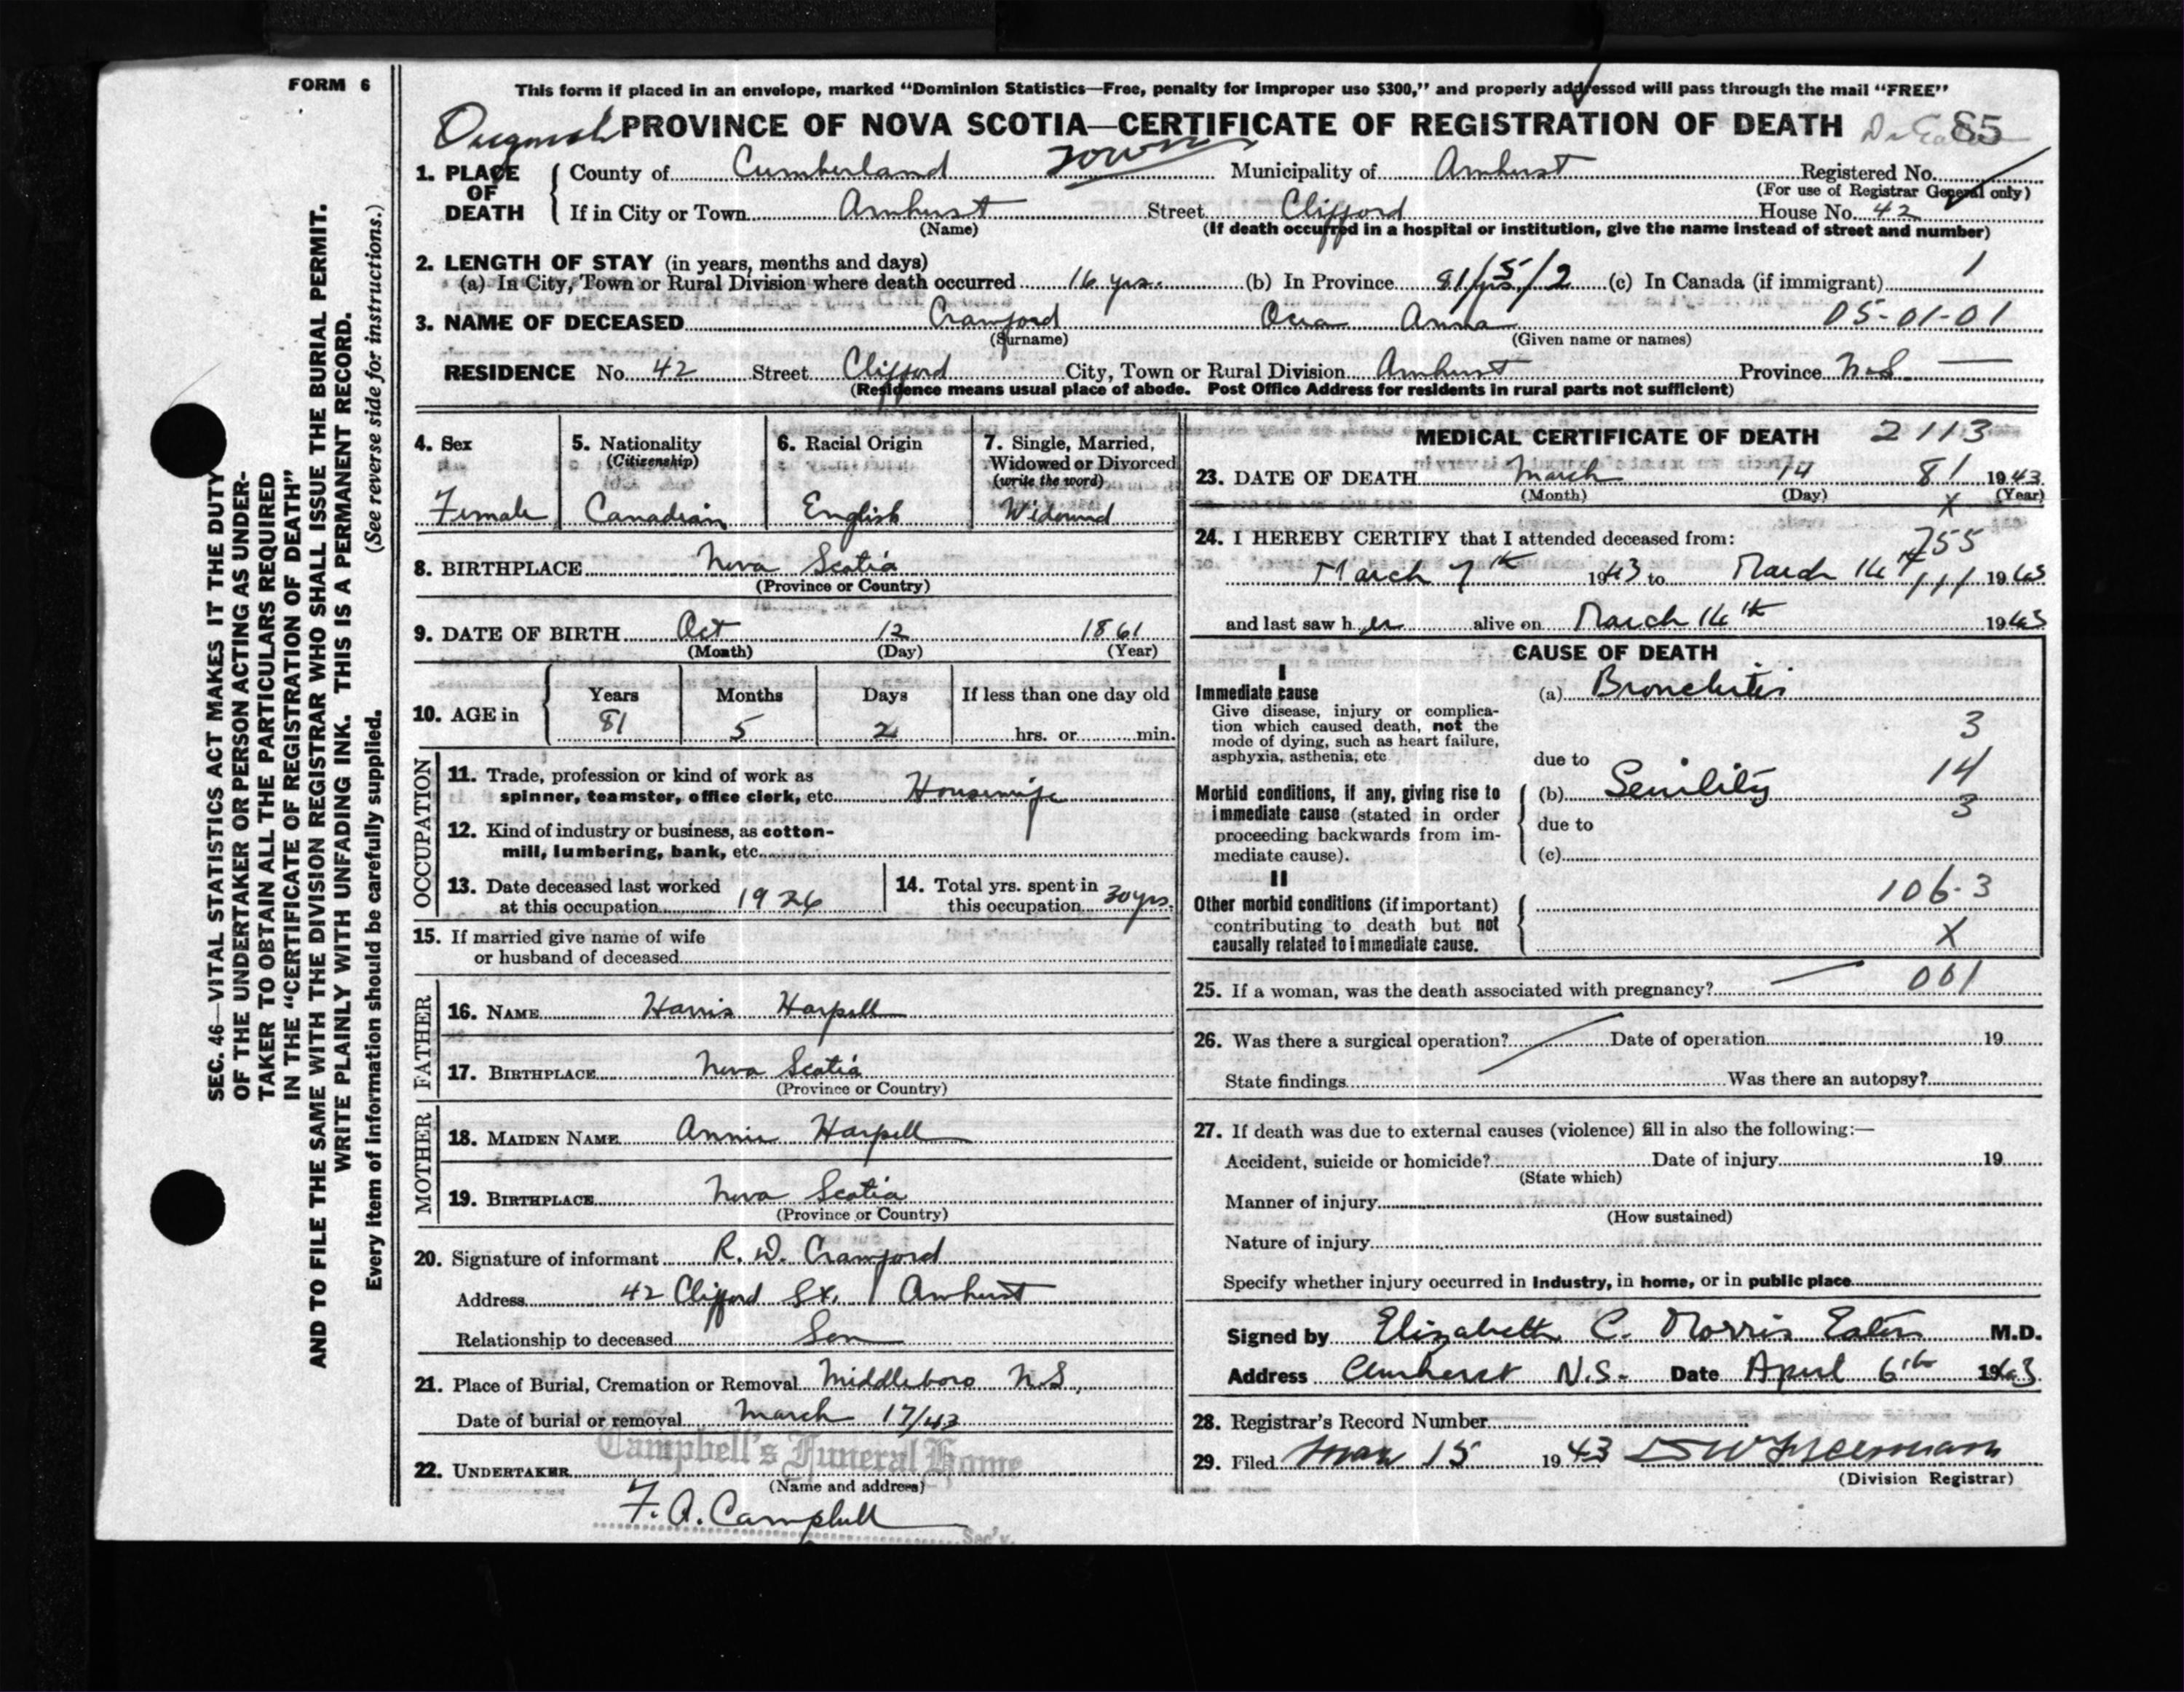 FORM 6
SEC. 46—VITAL STATISTICS ACT MAKES IT THE DUTY
OF THE UNDERTAKER OR PERSON ACTING AS UNDER-
TAKER TO OBTAIN ALL THE PARTICULARS REQUIRED
IN THE "CERTIFICATE OF REGISTRATION OF DEATH"
AND TO FILE THE SAME WITH THE DIVISION REGISTRAR WHO SHALL ISSUE THE BURIAL PERMIT.
WRITE PLAINLY WITH UNFADING INK. THIS IS A PERMANENT RECORD.
Every item of information should be carefully supplied. (See reverse side for instructions.)
This form if placed in an envelope, marked "Dominion Statistics—Free, penalty for improper use $300," and properly addressed will pass through the mail "FREE"
PROVINCE OF NOVA SCOTIA—CERTIFICATE OF REGISTRATION OF DEATH 85
1. PLACE OF DEATH
County of Cumberland Town Municipality of Amherst Registered No.
(For use of Registrar General only)
If in City or Town Amherst Street Clifford House No. 42
(Name) (If death occurred in a hospital or institution, give the name instead of street and number)
2. LENGTH OF STAY (in years, months and days)
(a) In City, Town or Rural Division where death occurred 16 yrs. (b) In Province 81/5/2 (c) In Canada (if immigrant) 1
3. NAME OF DECEASED Crawford Anna 05-01-01
(Surname) (Given name or names)
RESIDENCE No. 42 Street Clifford City, Town or Rural Division Amherst Province N.S.
(Residence means usual place of abode. Post Office Address for residents in rural parts not sufficient)
4. Sex
Female
5. Nationality
(Citizenship)
Canadian
6. Racial Origin
English
7. Single, Married,
Widowed or Divorced
(write the word)
Widowed
8. BIRTHPLACE Nova Scotia
(Province or Country)
9. DATE OF BIRTH Oct 12 1861
(Month) (Day) (Year)
10. AGE in
Years Months Days If less than one day old
81 5 2 hrs. or min.
OCCUPATION
11. Trade, profession or kind of work as
spinner, teamster, office clerk, etc. Housewife
12. Kind of industry or business, as cotton-
mill, lumbering, bank, etc.
13. Date deceased last worked
at this occupation 1926
14. Total yrs. spent in
this occupation 30 yrs.
15. If married give name of wife
or husband of deceased
FATHER
16. NAME Harris Harpell
17. BIRTHPLACE Nova Scotia
(Province or Country)
MOTHER
18. MAIDEN NAME Annie Harpell
19. BIRTHPLACE Nova Scotia
(Province or Country)
20. Signature of informant R. W. Crawford
Address 42 Clifford St. Amherst
Relationship to deceased Son
21. Place of Burial, Cremation or Removal Middleboro N.S.
Date of burial or removal March 17/43
Campbell's Funeral Home
22. UNDERTAKER
(Name and address)
F. A. Campbell
Sec'y.
MEDICAL CERTIFICATE OF DEATH 2113
23. DATE OF DEATH March 14 81 1943
(Month) (Day) (Year)
X
24. I HEREBY CERTIFY that I attended deceased from:
755
March 7th 1943 to March 14th 111 1943
and last saw her alive on March 14th 1943
CAUSE OF DEATH
I
Immediate cause
Give disease, injury or complica-
tion which caused death, not the
mode of dying, such as heart failure,
asphyxia, asthenia, etc
(a) Bronchitis
3
due to
14
Morbid conditions, if any, giving rise to
immediate cause (stated in order
proceeding backwards from im-
mediate cause).
(b) Senility
3
due to
(c)
II
Other morbid conditions (if important)
contributing to death but not
causally related to immediate cause.
106-3
X
25. If a woman, was the death associated with pregnancy? 001
26. Was there a surgical operation? Date of operation 19
State findings Was there an autopsy?
27. If death was due to external causes (violence) fill in also the following:—
Accident, suicide or homicide? Date of injury 19
(State which)
Manner of injury
(How sustained)
Nature of injury
Specify whether injury occurred in industry, in home, or in public place
Signed by Elizabeth C. Morris Eaton M.D.
Address Amherst N.S. Date April 6th 1943
28. Registrar's Record Number
29. Filed Mar 15 1943 Freeman
(Division Registrar)